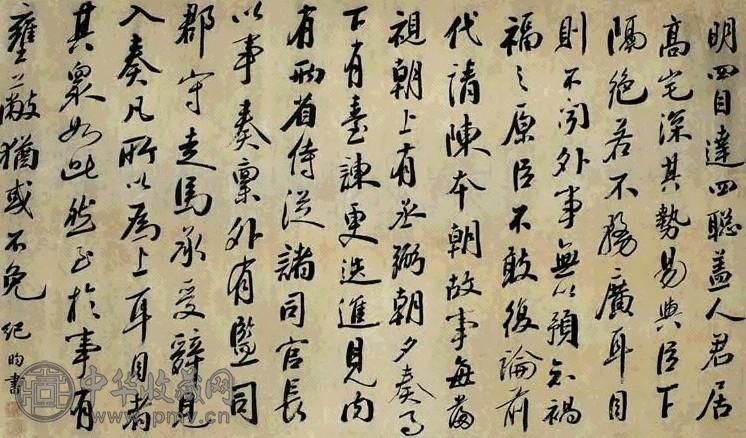 明四目達四聰蓋人君居
高宅深其勢易與臣下
隔絕若不務廣耳目
則不聞外事無以預知禍
福之原臣不敢復論前
代請陳本朝故事每當
視朝上有丞弼朝夕奏事
下有臺諫更迭進見内
有兩省侍從諸司官長
以事奏稟外有監司
郡守走馬承受辭見
入奏凡所以為上耳目者
其衆如此然至於事有
壅蔽猶或不免 紀昀書
中华收藏网
www.pmv.cn